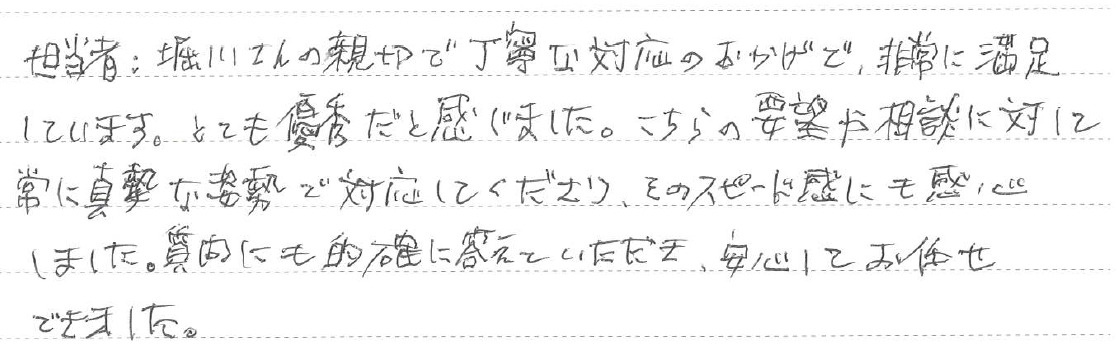 担当者：堀川さんの親切で丁寧な対応のおかげで、非常に満足
しています。とても優秀だと感じました。こちらの要望や相談に対して
常に真摯な姿勢で対応してくださり、そのスピード感にも感心
しました。質問にも的確に答えていただき、安心してお任せ
できました。